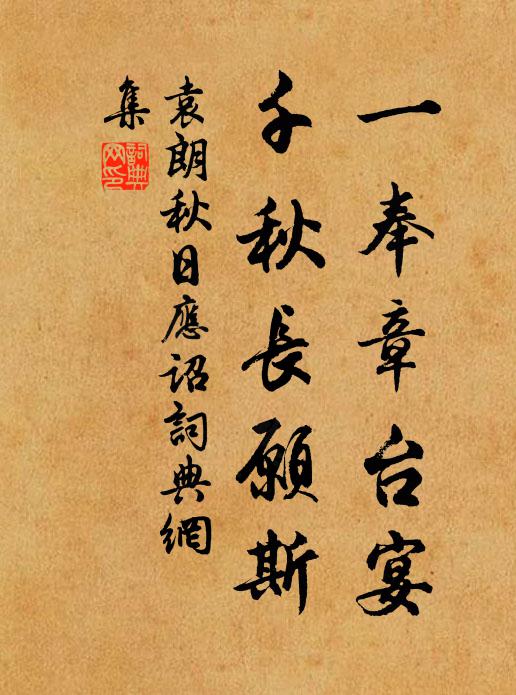 一奉章台宴
千秋長願斯
袁朗秋日應詔詞典網
集
詞典網印